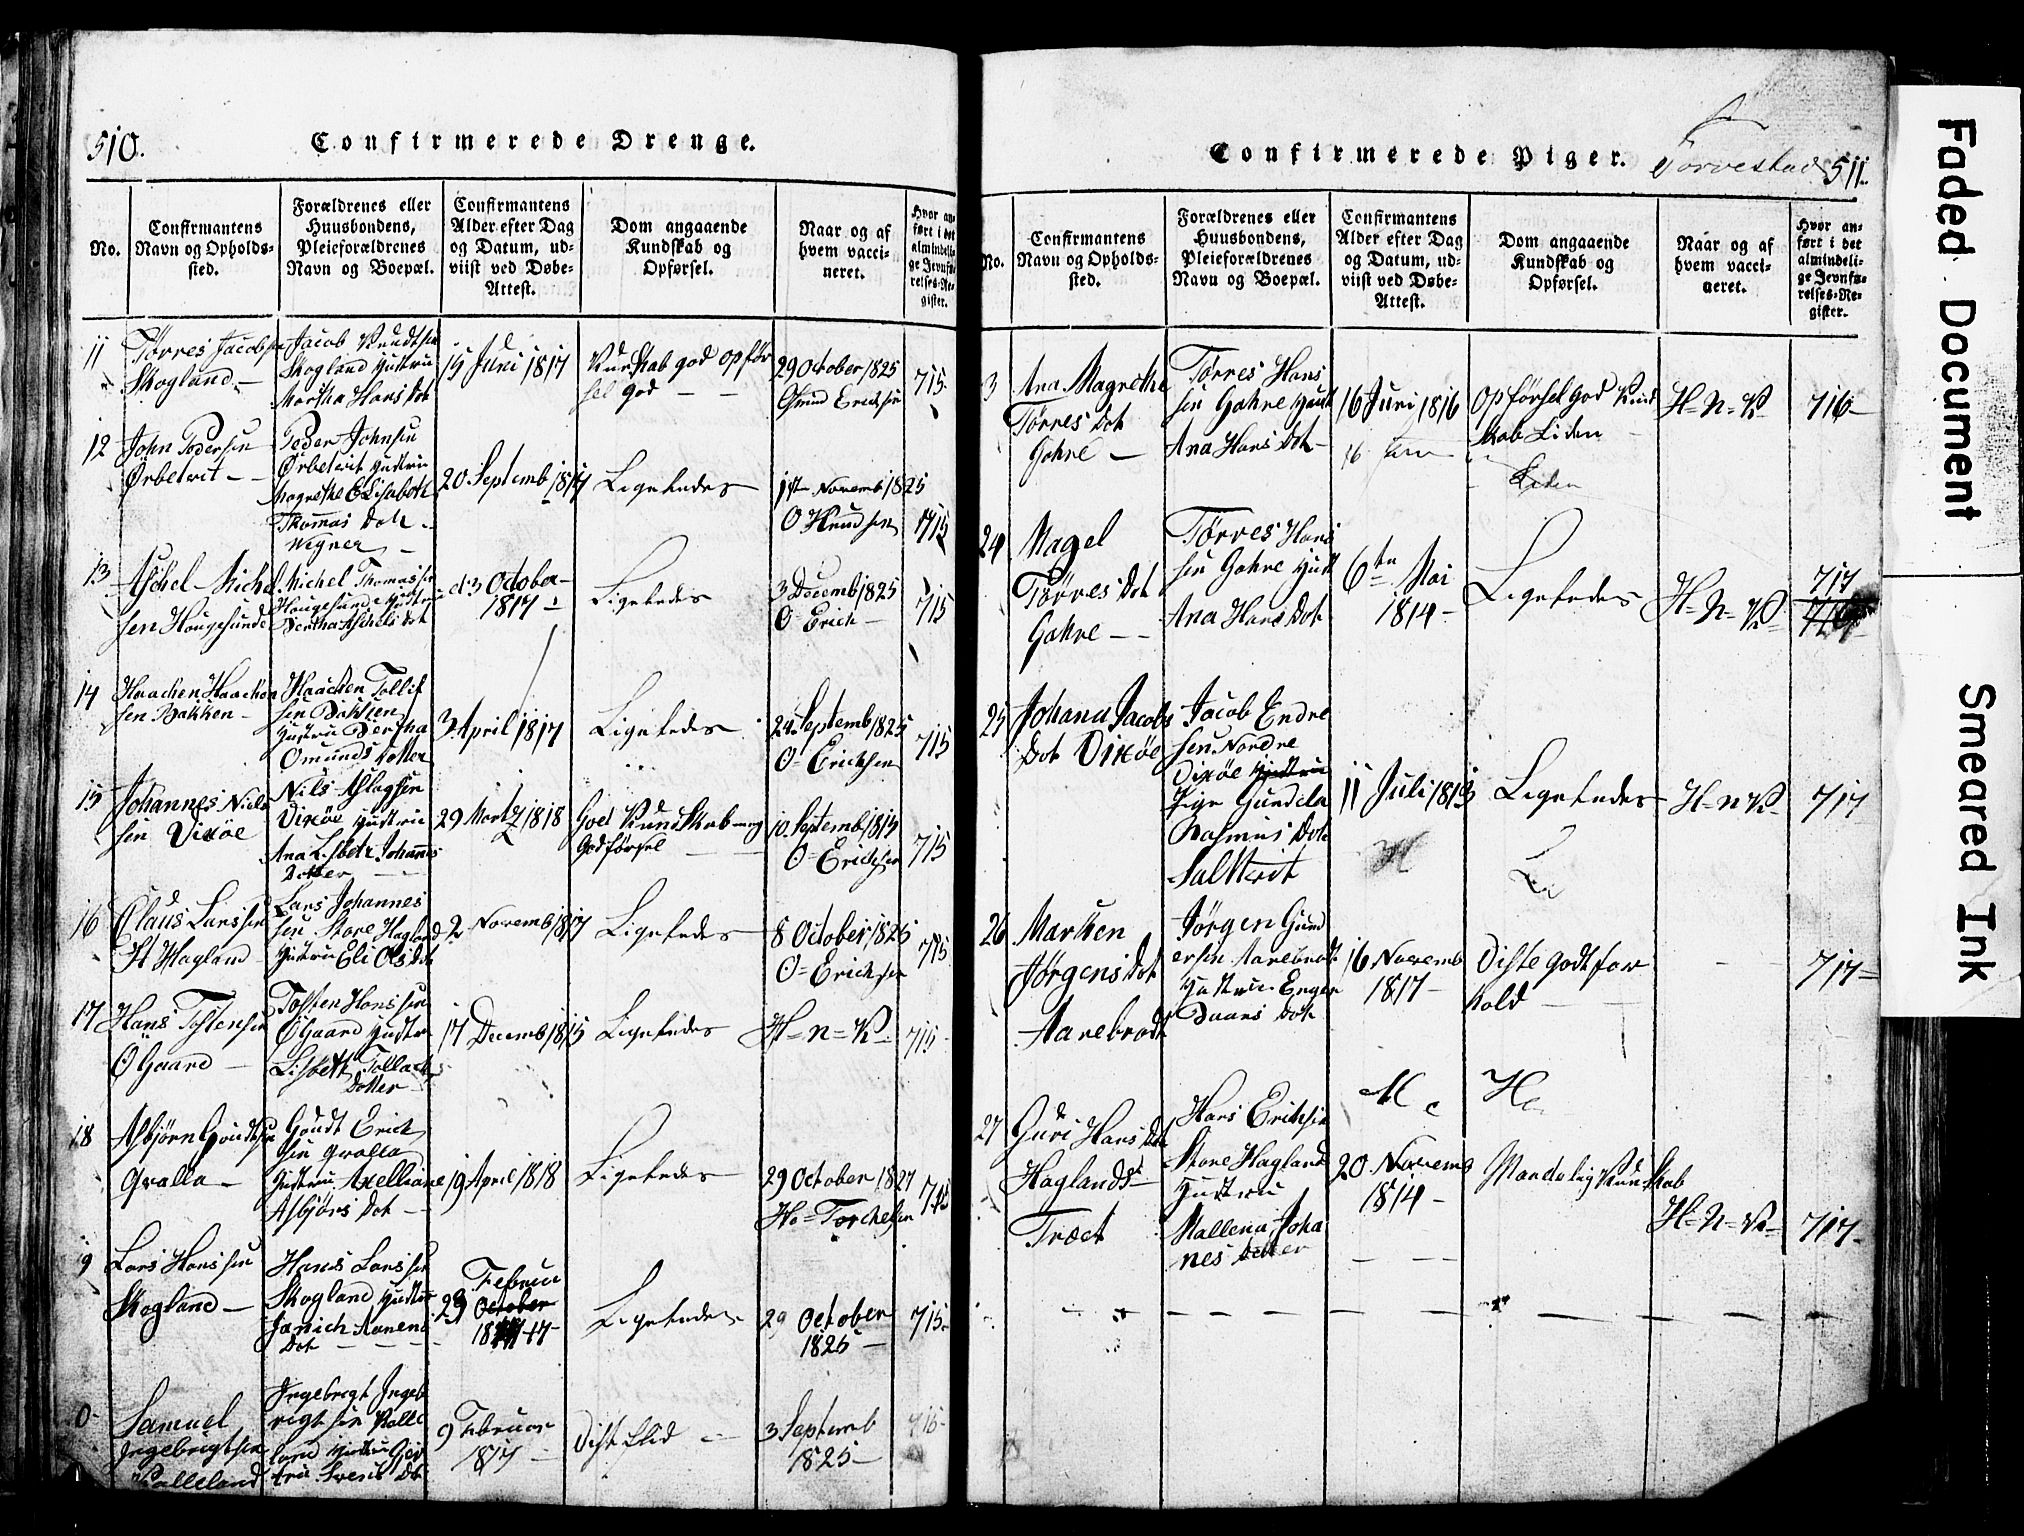 510.
Confirmerede Drenge.
No.
Confirmantens
Navn og Opholds-
sted.
Forældrenes eller
Huusbondens,
Pleieforældrenes
Navn og Boepæl.
Confirmantens
Alder efter Dag
og Datum, ud-
viist ved Døbe-
Attest.
Dom angaaende
Kundskab og
Opførsel.
Naar og af
hvem vacci-
neret.
Hvor an-
ført i det
almindeli-
ge Jevnfø-
relses-Re-
gister.
11
Tørres Jacobsen
Skogland
Jacob Knudtsen
Skogland Hustru
Martha Hans Dot
15 Juni 1817
Kundskab god opfør
sel god
29 October 1825
Omund Erichsen
715
12
John Pedersen
Ørbetvit
Peder Johnsen
Ørbetvit Hustru
Magrethe Elisabeth
Thomas Dotr
Wegner
20 Septemb 1817
Ligeledes
1ste Novemb 1825
O Knudsen
715
13
Aschel Michel
sen Hougesunde
Michel Thomassen
Hougesunde Hustru
Bertha Aschels Dot
d: 3 October
1817
Ligeledes
3 Decemb 1825
O Erich
715
14
Haachen Haachen
sen Bakken
Haachen Tollif
sen Bakken
Hustru Bertha
Omunds Dotter
3 April 1817
Ligeledes
24 Septemb 1825
O = Erichsen
715
15
Johannes Niels
sen Vixøe
Nils Aslagsen
Vixøe Hustru
Ana Lisbeth Johannes
Dotter
29 Martz 1818
God Kundskab og
God førsel
10 Septemb 1815
O = Erichsen
715
16
Claus Larssen
St Hagland
Lars Johannes
sen Store Hagland
Hustru Eli Ols Dot
2 Novemb 1817
Ligeledes
8 October 1825
O = Erichsen
715
17
Hans Tostensen
Ø Gaard
Tosten Hanssen
Ø Gaard Hustru
Lisbeth Tollachs
Dotter
17 Decemb 1815
Ligeledes
H = N = K
715
18
Asbjørn Goudtsen
Qvalla
Goudt Erich
sen Qvalla
Hustru Axelliane
Asbjørs Dot
19 April 1818
Ligeledes
29 October 1827
Ho = Torchelsen
715
9
Lars Hanssen
Skogland
Hans Larssen
Skogland Hustru
Janich Aanens
Dot
Februar
29 October
1817
Ligeledes
29 October
1825
715
0
Samuel
Ingebrigtsen
Kalleland
Ingebrigt Ingeb
rigtsen Kalle
land Hustru Gjer
tru Svens Dot
9 Februar
1817
Dist flid
3 Septemb
1825
715
Confirmerede Piger.
Torvestad
511.
No.
Confirmantens
Navn og Opholds-
sted.
Forældrenes eller
Huusbondens,
Pleieforældrenes
Navn og Boepæl.
Confirmantens
Alder efter Dag
og Datum, ud-
viist ved Døbe-
Attest.
Dom angaaende
Kundskab og
Opførsel.
Naar og af
hvem vacci-
neret.
Hvor an-
ført i det
almindeli-
ge Jevnfø-
relses-Re-
gister.
3
Ana Magrethe
Tørres Dot
Gahre
Tørres Hans
sen Gahre Hust
Ana Hans Dot
16 Juni 1816
Opførsel god Kund
skab Liden
Liden
H = N = K
716
24
Magel
Tørres Dot
Gahre
Tørres Hans
sen Gahre Hust
Ana Hans Dot
6te Mai
1814
Ligeledes
H = N = K
717
25
Johana Jacobs
Dot Vixøe
Jacob Endre
sen Nordre
Vixøe Hustru
Pige Gundela
Rasmus Dotr
Saltveit
11 Juli 1813
Ligeledes
H = N K
717
26
Marken
Jørgens Dot
Aarebrodt
Jørgen Gund
ersen Aarebrodt
Hustru Enger
Baars Dot
16 Novemb
1817
Diste godt for
hold
717
27
Guri Hans Dot
Haglands
Træet
Hans Erichsen
Store Hagland
Hustru
Mallena Joha
nes Dotter
20 Novemb
1814
Maadelig Kundskab
H = N = K
717
Faded Document
Smeared Ink